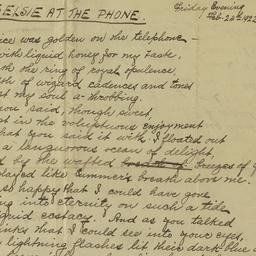 ELSIE AT THE PHONE.
Friday Evening
Feb. 24th 1922
ice was golden on the telephone —
with liquid honey for my taste,
th the ring of royal opulence,
th of wizard cadences and tones
t my soul a-throbbing.
you said, though sweet,
st in the voluptuous enjoyment
hat you said it with. I floated out
a languorous ocean of delight,
d by the wafted breath of breezes of
played like Summer's breath above me.
so happy that I could have gone
ng into eternity on such a tide
iquid ecstacy. And as you talked
inks that I could see into your eyes,
lightning flashes lit their dark blue